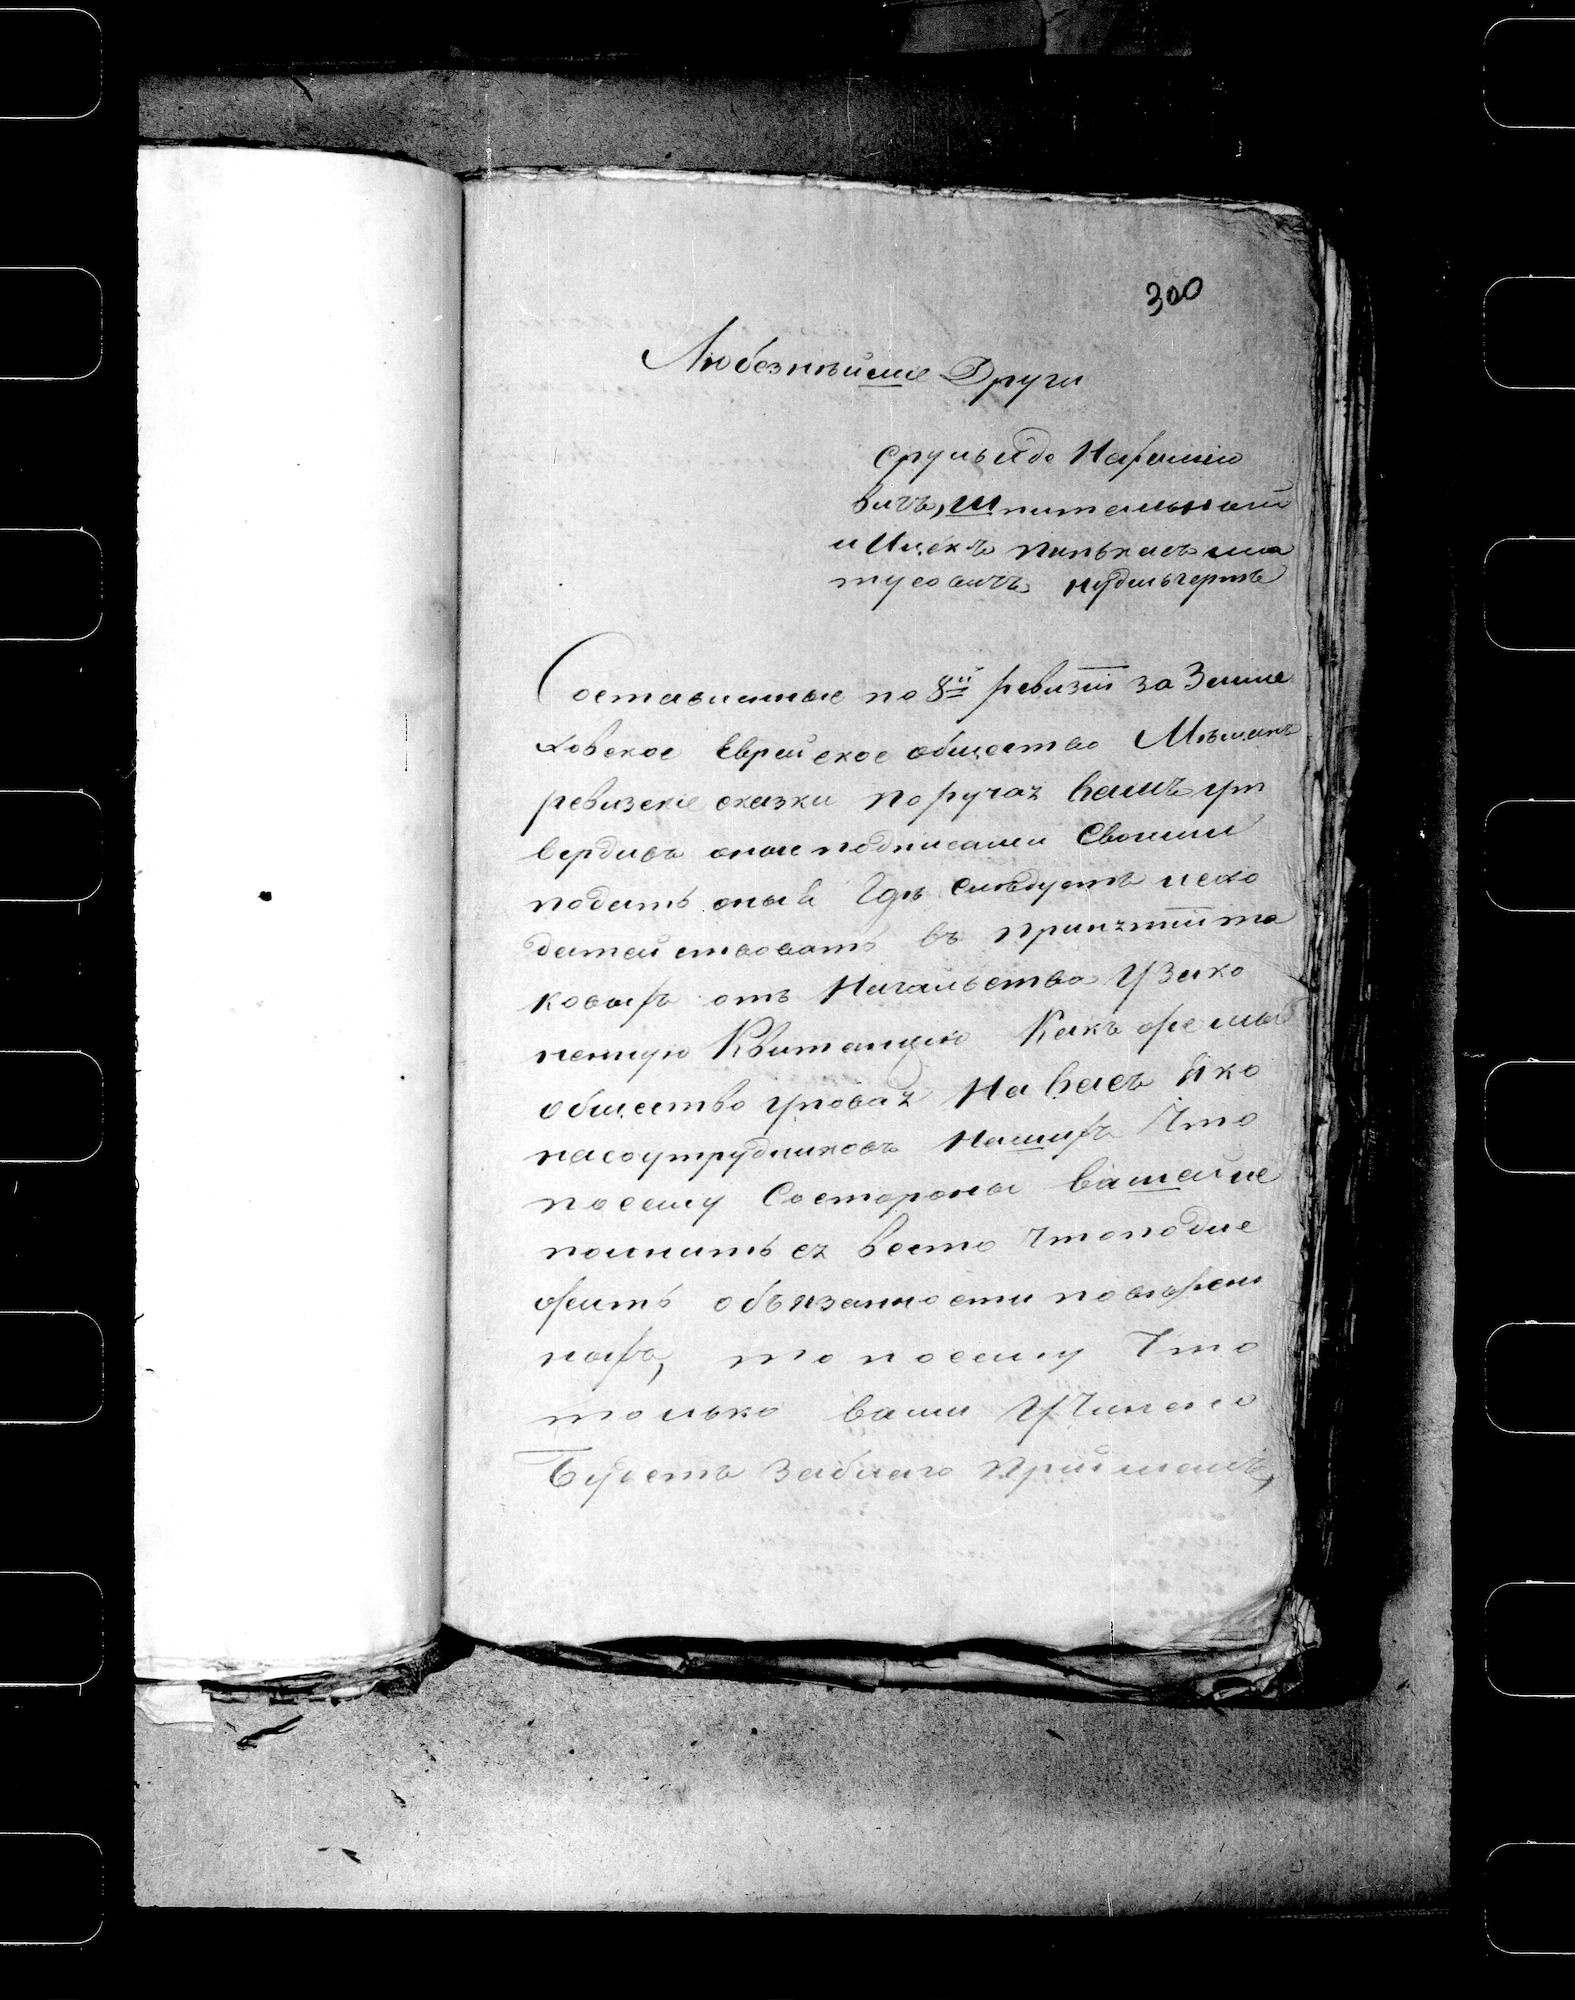 300
Любезнѣйшіе Други
Срульйдо Нахманіо
вичъ, Шпитальный
и Ицекъ Пинькасъ ма
тусовичъ Нудельгертъ
Составленные по 8й ревизіи за Зинь
ковское Еврейское общество Мѣщанъ
ревизскіе сказки поручая вамъ ут
вердивъ оные подписами Своими
подать оныя Гдѣ слѣдуетъ и схо
датействовать въ принятіи та
ковыхъ отъ Начальства Узако
ненную Квитанцію Какъ же мы
общество уповая На васъ Яко
на соутрудниковъ Нашихъ Что
посему Состороны вашей не
полнится всето Что подле
житъ обязанности повѣрен
ныхъ, то посему Что
только вами Учинено
Будетъ Заблаго Пріймемъ,